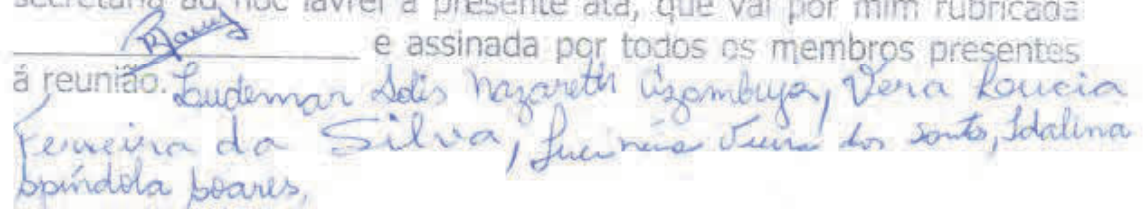 secretaria ad hoc lavrei a presente ata, que vai por mim rubricada
e assinada por todos os membros presentes
á reunião. Ludemar Solis Nazareth Azambuja, Vera Loucia
Ferreira da Silva, Lucinéia Vieira dos Santos, Idalina
Spindola Soares,